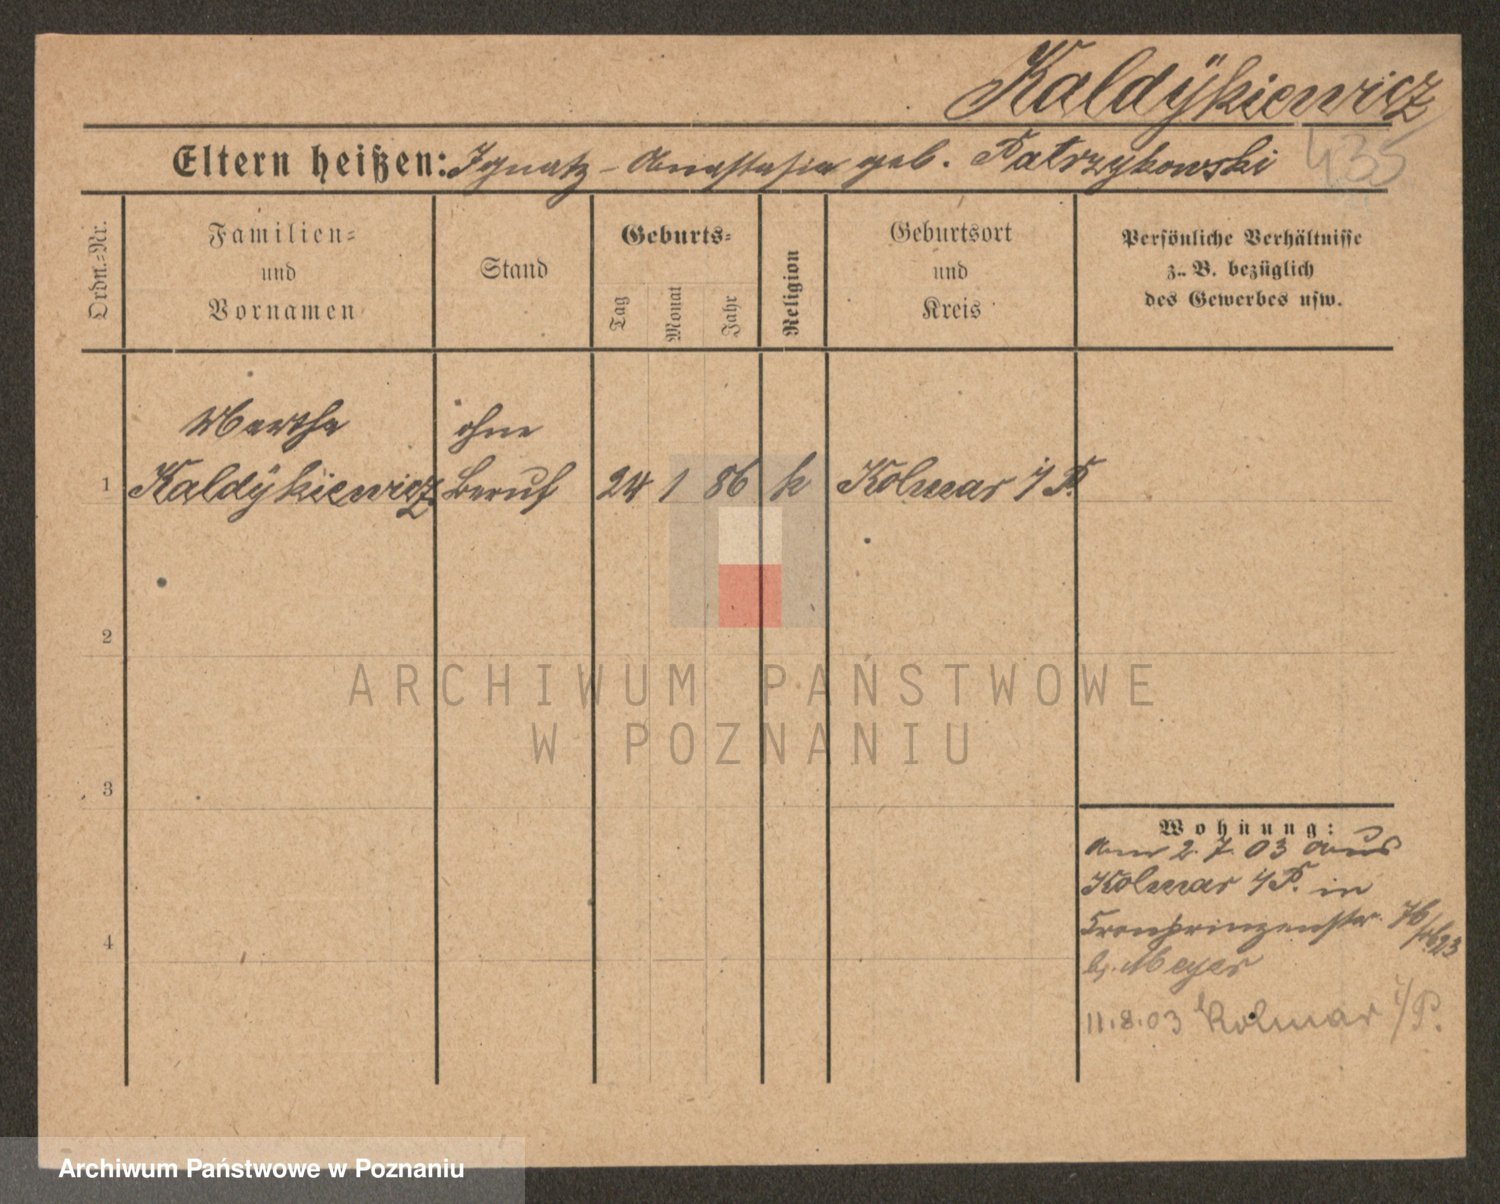 Kaldÿkiewicz
435
Eltern heißen: Ignatz - Anastasia geb. Patrzykowski
Ordn.-Nr.
Familien-
und
Vornamen
Stand
Geburts-
Tag
Monat
Jahr
Religion
Geburtsort
und
Kreis
Persönliche Verhältnisse
z. B. bezüglich
des Gewerbes usw.
Martha
ohne
1 Kaldÿkiewicz Beruf 24 1 86 k Kolmar i/P.
2
ARCHIWUM PAŃSTWOWE
W POZNANIU
3
Wohnung:
am 2. 7. 03 aus
Kolmar i/P. in
4
Kronprinzenstr. 76
b. Meyer
11.8.03 Kolmar i/P.
Archiwum Państwowe w Poznaniu